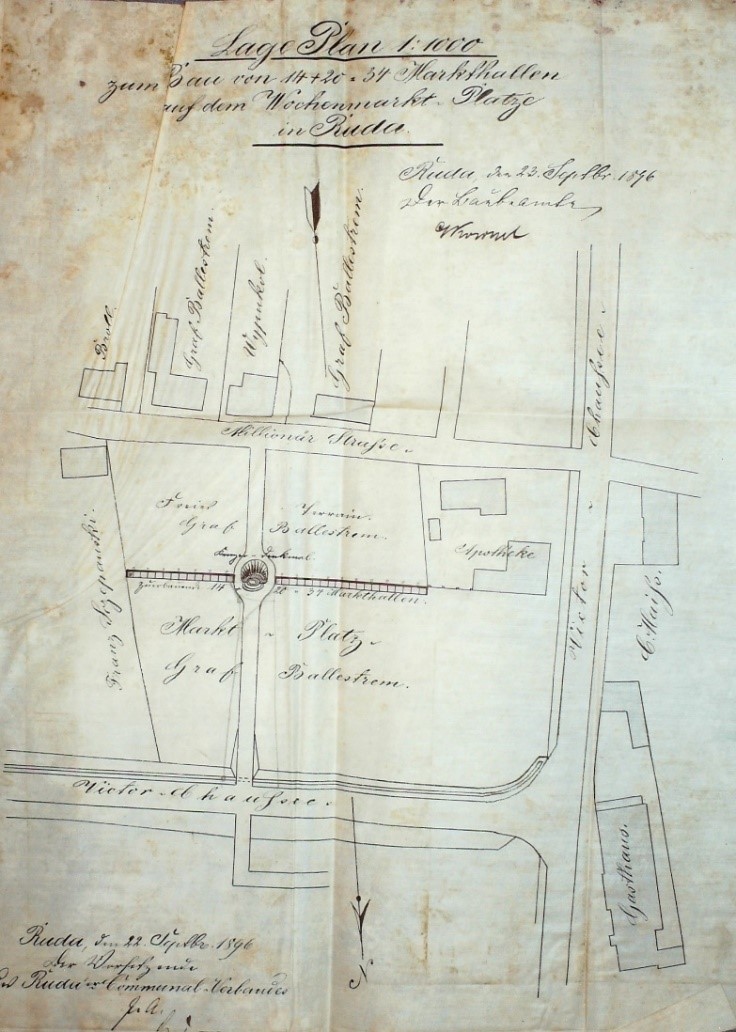 Lage Plan 1:1000
zum Bau von 14+20=34 Markthallen
auf dem Wochenmarkt-Platze
in Ruda.
Ruda, den 23. Septbr. 1896
Der Baubeamte
Broll.
Graf Ballestrem.
Wypukol.
Graf Ballestrem.
Millionär Strasse.
Victor-Chaussee.
Franz Szepanski.
Freies Terrain.
Graf Ballestrem.
Apotheke
C. Haiss.
Krieger-Denkmal.
14
20=34 Markthallen.
Markt-Platz
Graf Ballestrem.
Victor-Chaussee.
Gasthaus.
N
Ruda, den 22. Septbr. 1896
Der Vorsitzende
Ruda'er Communal-Verbandes
J. A.